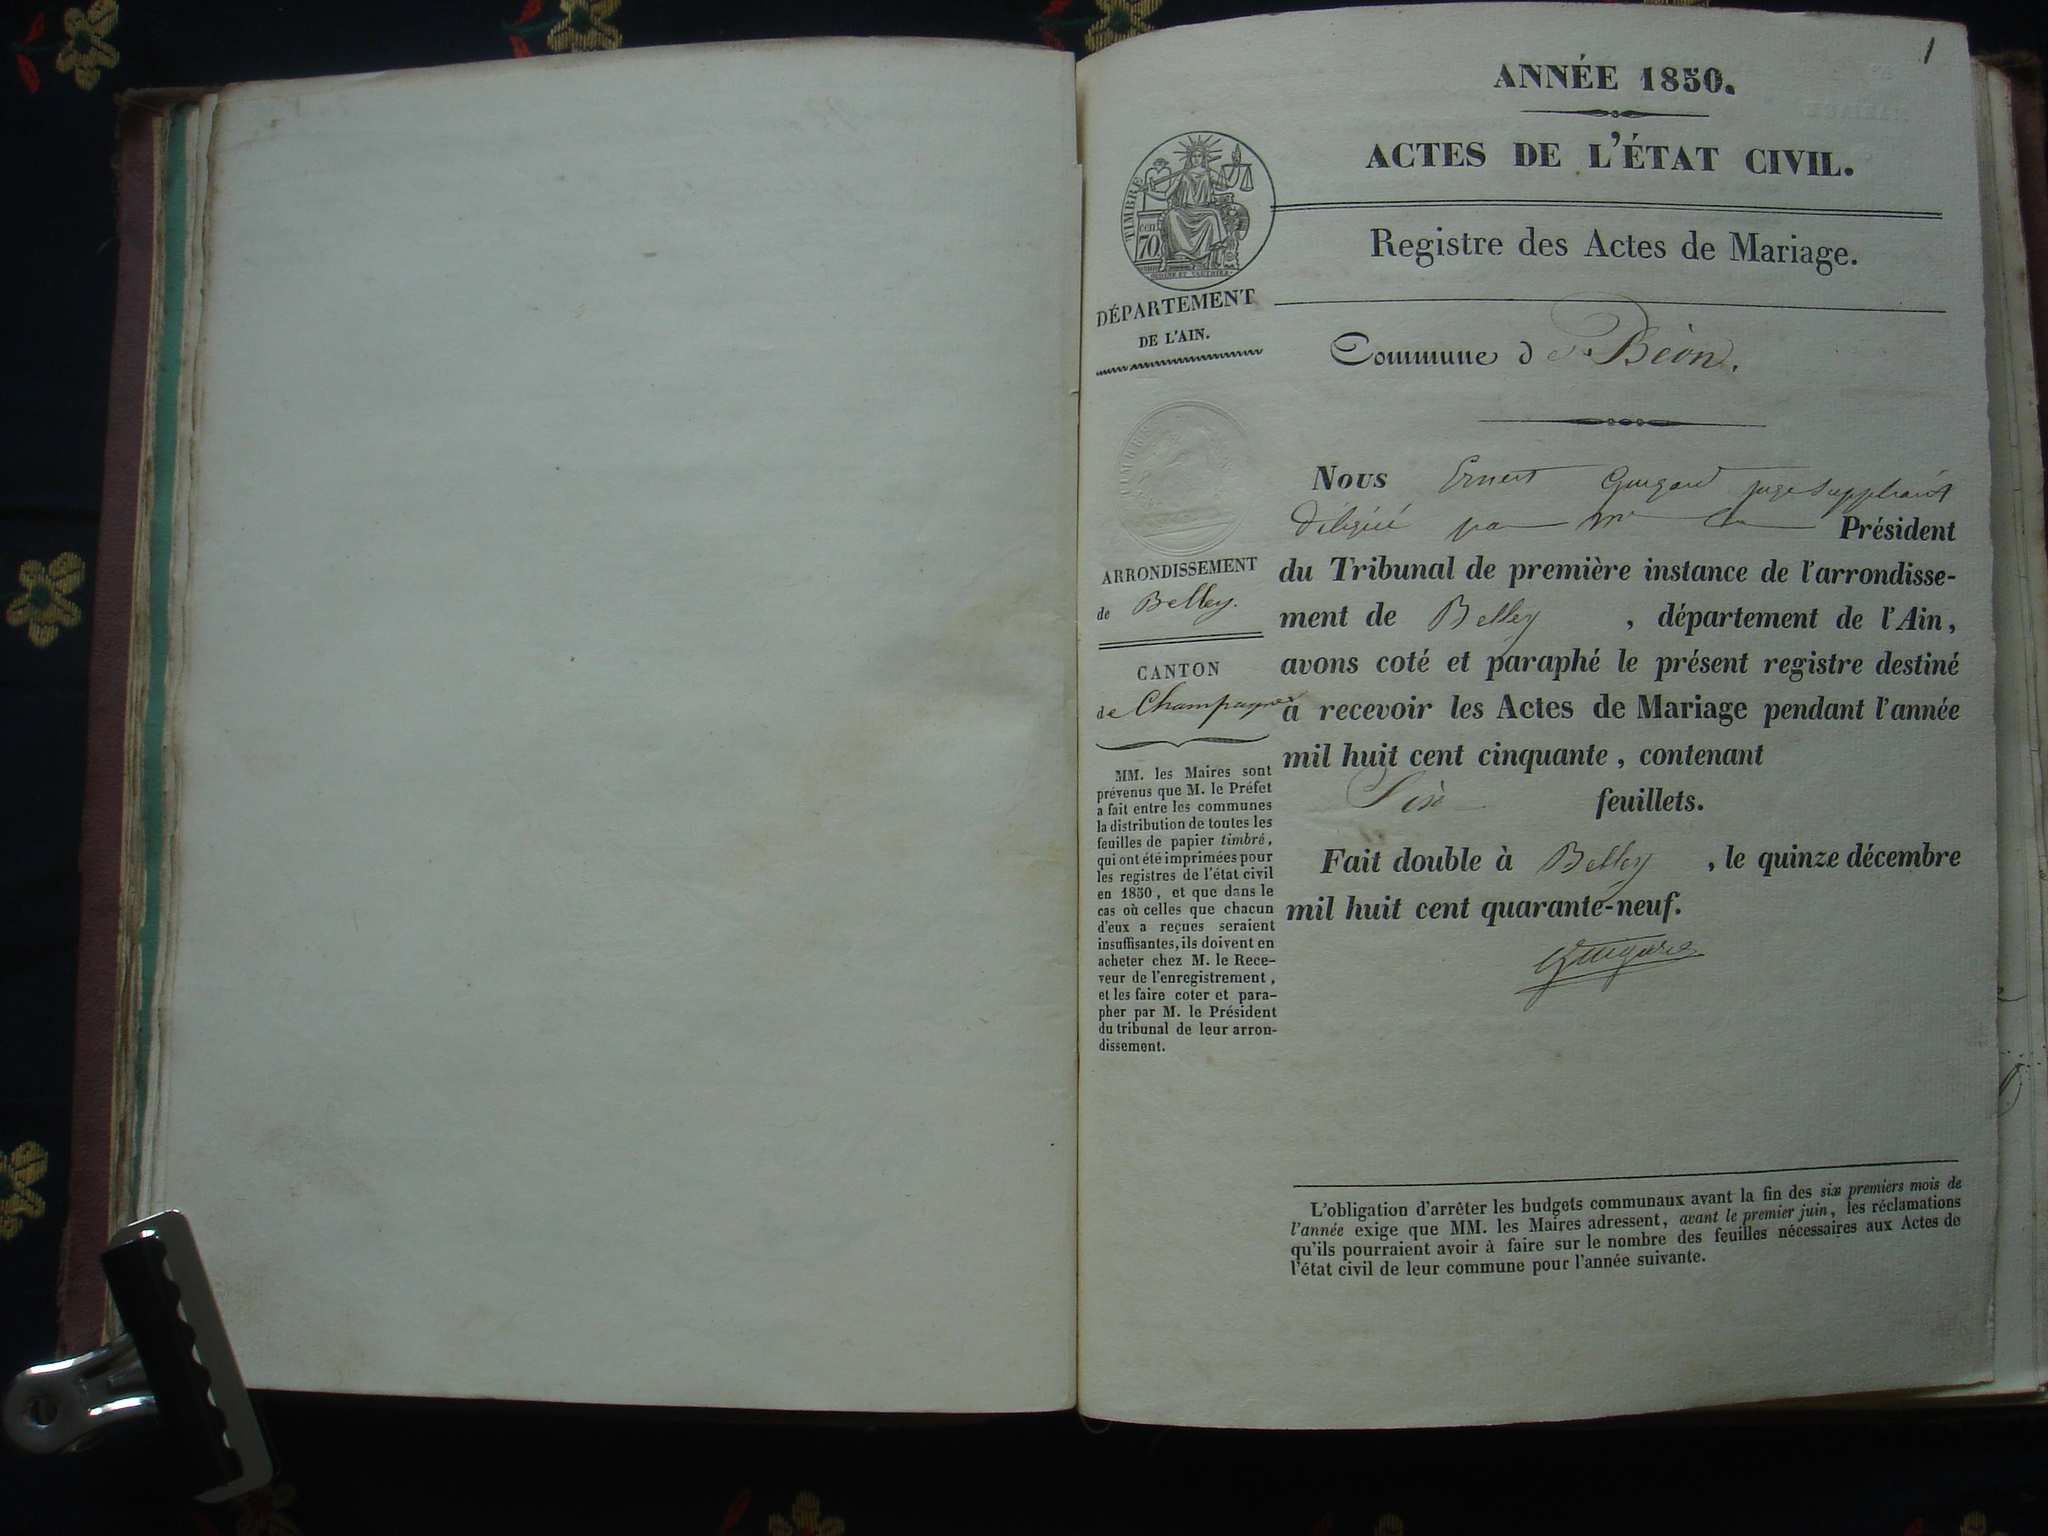 1
ANNÉE 1850.
ACTES DE L'ÉTAT CIVIL.
Registre des Actes de Mariage.
TIMBRE
cen.
70
DÉPARTEMENT
DE L'AIN.
Commune de Béon.
ARRONDISSEMENT
de Belley.
CANTON
de Champagne
MM. les Maires sont
prévenus que M. le Préfet
a fait entre les communes
la distribution de toutes les
feuilles de papier timbré,
qui ont été imprimées pour
les registres de l'état civil
en 1850, et que dans le
cas où celles que chacun
d'eux a reçues seraient
insuffisantes, ils doivent en
acheter chez M. le Rece-
veur de l'enregistrement,
et les faire coter et para-
pher par M. le Président
du tribunal de leur arron-
dissement.
Nous Ernest Guigard juge suppléant
délégué par Mr le Président
du Tribunal de première instance de l'arrondisse-
ment de Belley, département de l'Ain,
avons coté et paraphé le présent registre destiné
à recevoir les Actes de Mariage pendant l'année
mil huit cent cinquante, contenant
Six feuillets.
Fait double à Belley, le quinze décembre
mil huit cent quarante-neuf.
Guigard
L'obligation d'arrêter les budgets communaux avant la fin des six premiers mois de
l'année exige que MM. les Maires adressent, avant le premier juin, les réclamations
qu'ils pourraient avoir à faire sur le nombre des feuilles nécessaires aux Actes de
l'état civil de leur commune pour l'année suivante.